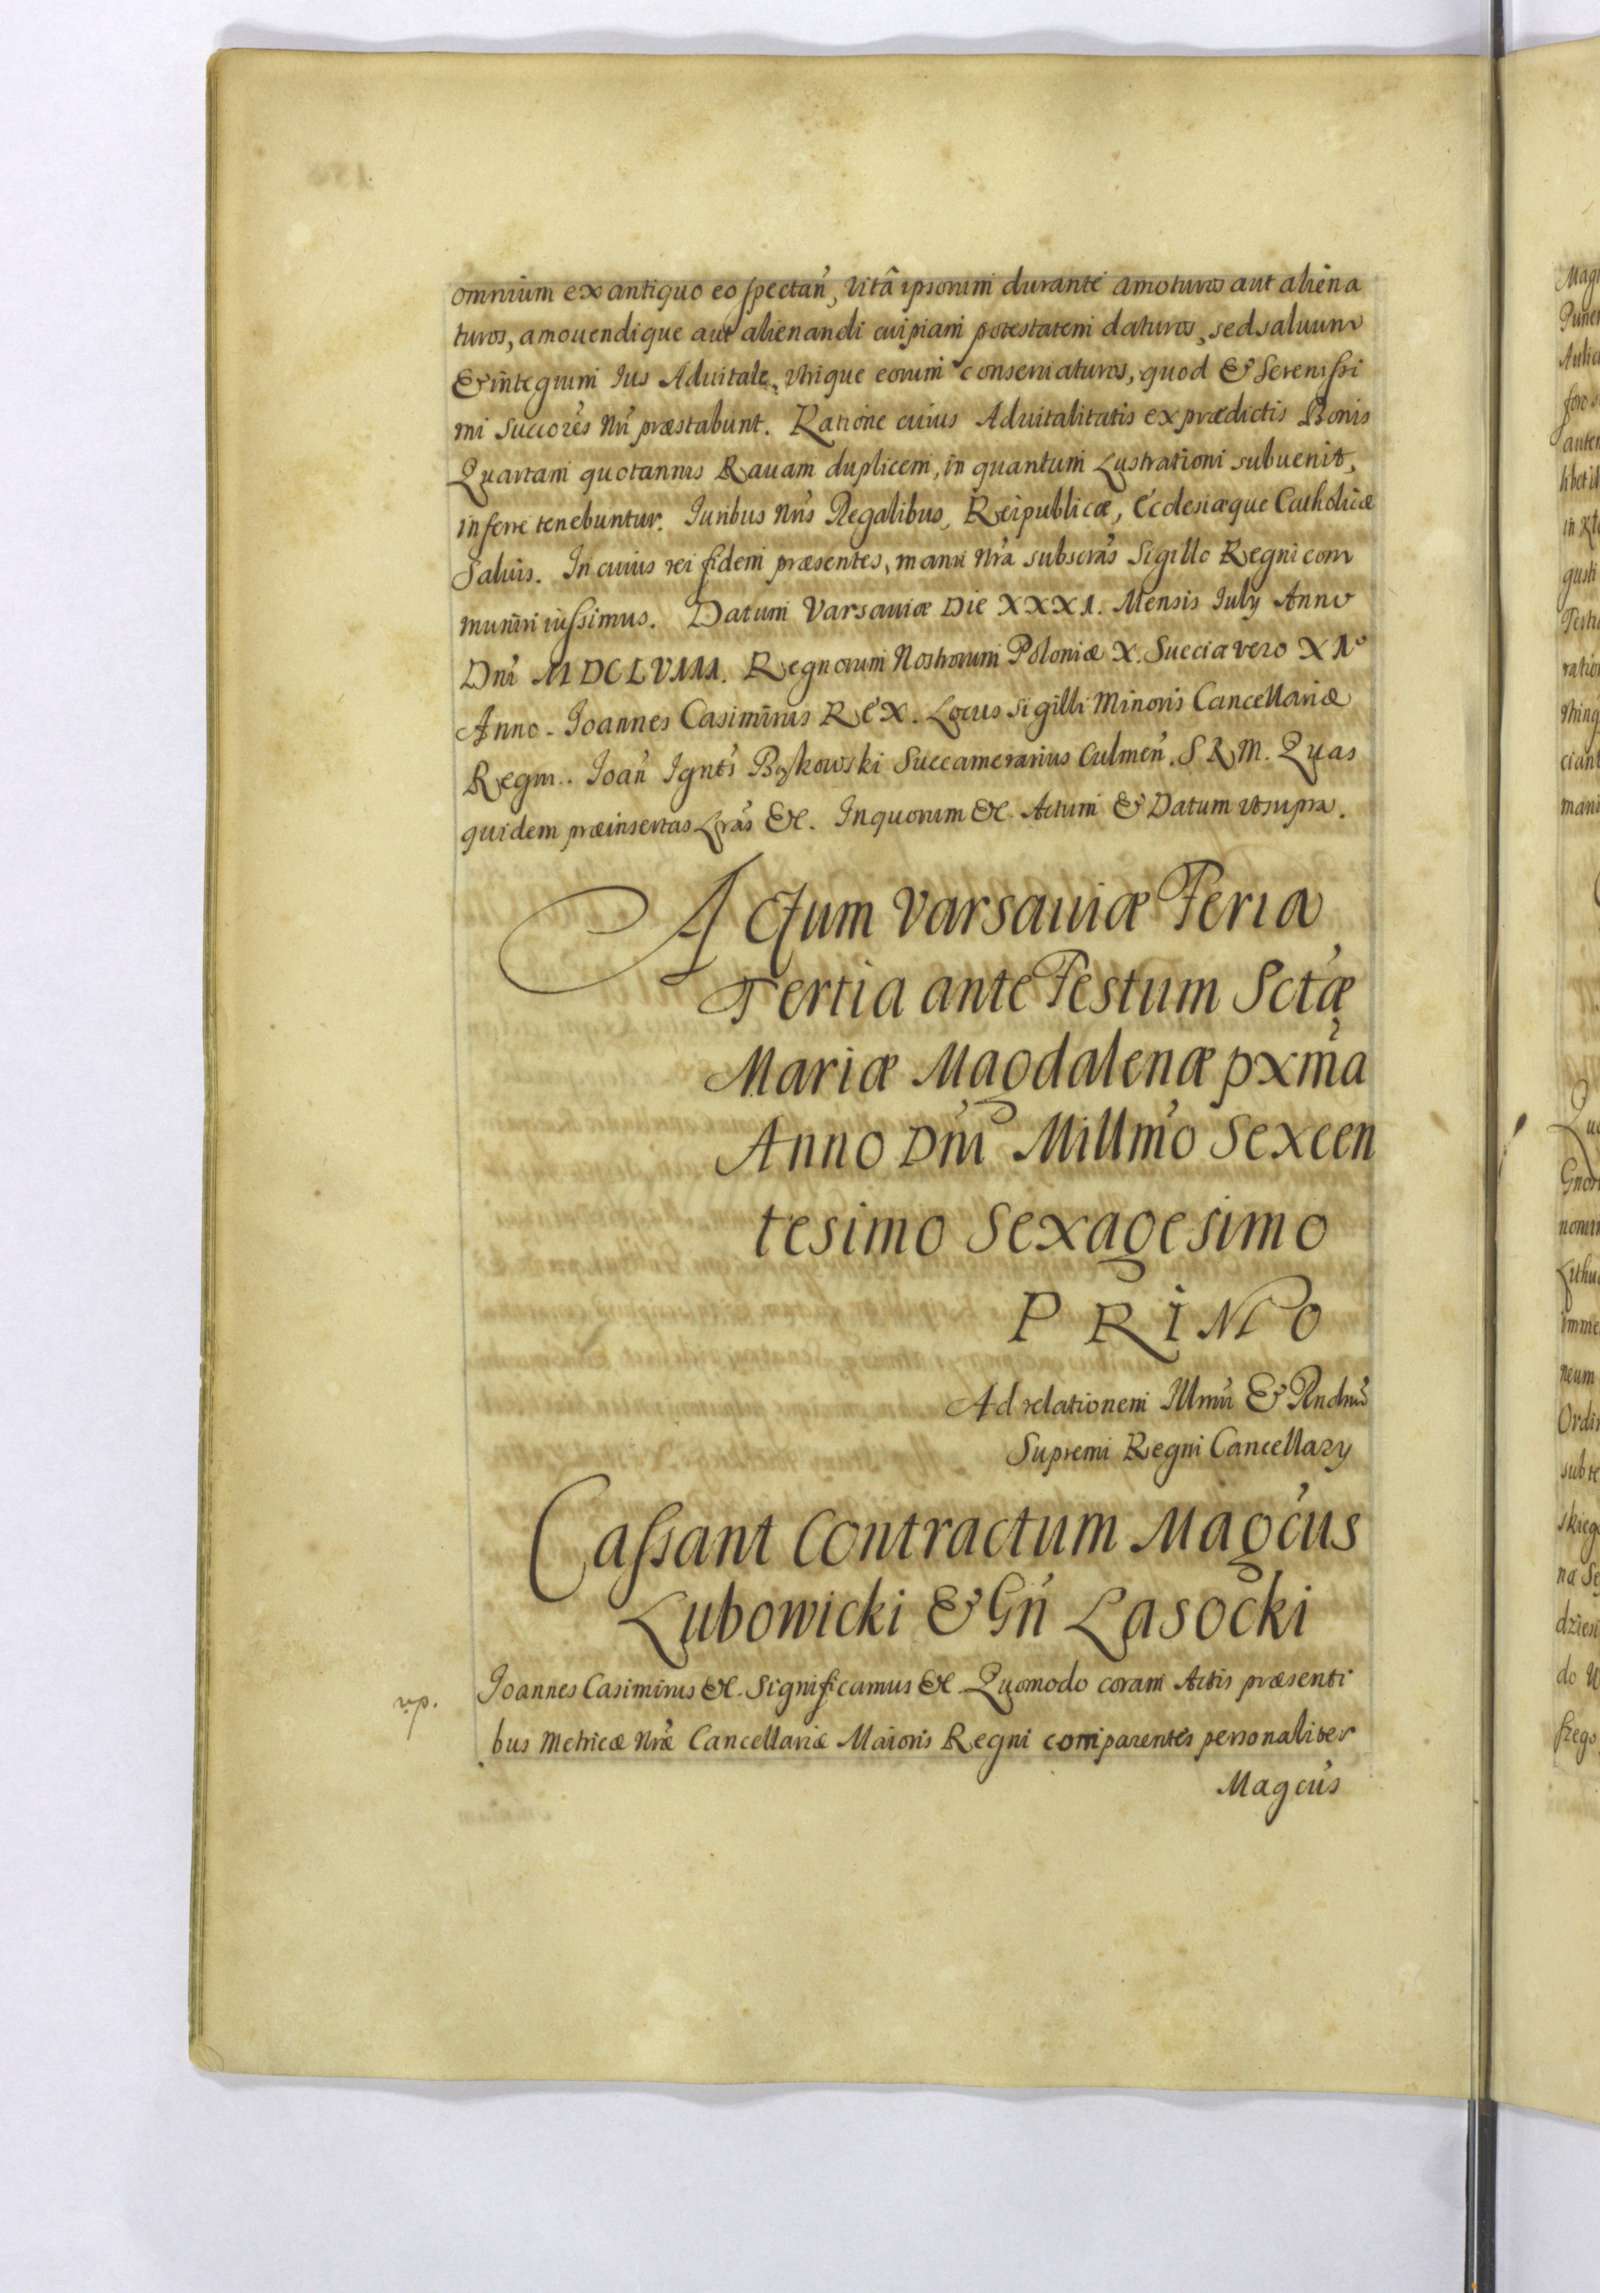 omnium ex antiquo eo spectan̄, vitâ ipsorum durante amoturos aut aliena
turos, amouendique aut alienandi cuipiam potestatem daturos, sed saluum
& integrum Ius Aduitale, vtrique eorum conseruaturos, quod & Serenissi
mi Succores Nri præstabunt. Ratione cuius Aduitalitatis ex prædictis Bonis
Quartam quotannis Rauam duplicem, in quantum Lustrationi subuenit,
inferre tenebuntur. Iuribus Nris Regalibus, Reipublicæ, Ecclesiæque Catholicæ
Saluis. In cuius rei fidem præsentes, manu Nra subscras Sigillo Regni com
muniri iussimus. Datum Varsauiæ Die XXXI. Mensis July Anno
Dni MDCLVIII. Regnorum Nostrorum Poloniæ X. Sueciæ vero XIº
Anno. Ioannes Casimirus REX. Locus Sigilli Minoris Cancellariæ
Regni. Ioan̄ Ignts Bąkowski Succamerarius Culmen̄. S R M. Quas
quidem præinsertas Lras &c. In quorum &c. Actum & Datum vt supra.
Actum Varsauiæ Feria
Tertia ante Festum Sctæ
Mariæ Magdalenæ pxma
Anno Dni Millmo Sexcen
tesimo Sexagesimo
PRIMO
Ad relationem Illmi & Rndmi
Supremi Regni Cancellary
Cassant Contractum Magcus
Lubowicki & Gn̄ Lasocki
Ioannes Casimirus &c. Significamus &c. Quomodo coram Actis præsenti
bus Metricæ Nræ Cancellariæ Maioris Regni comparentes personaliter
Magcus